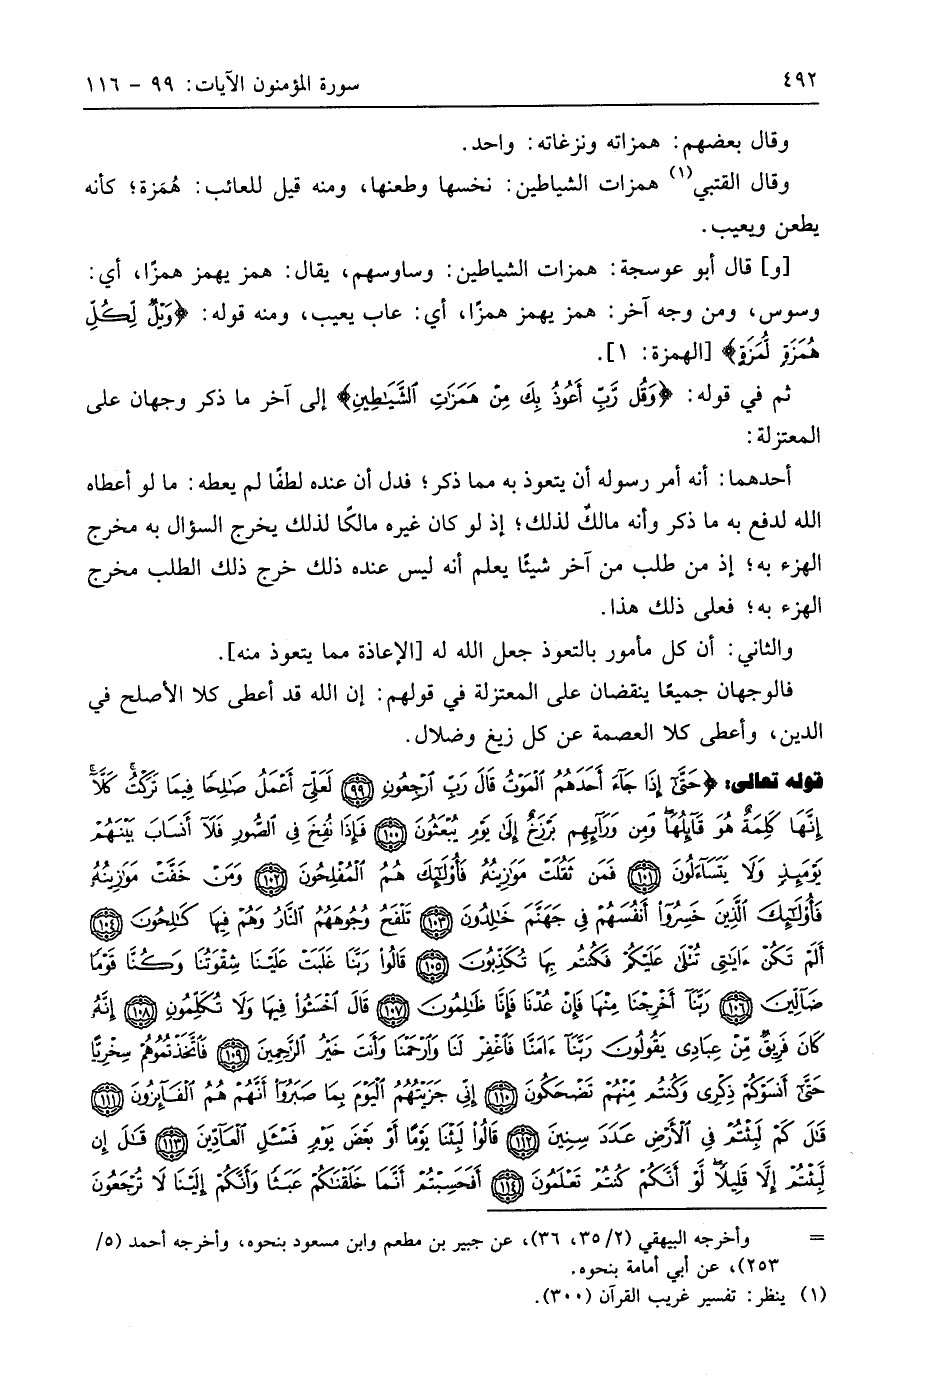 ٤٩٢ سورة المؤمنون الآيات: ٩٩ - ١١٦
وقال بعضهم: همزاته ونزغاته: واحد.
وقال القتبي(١) همزات الشياطين: نخسها وطعنها، ومنه قيل للعائب: هُمَزة؛ كأنه
يطعن ويعيب.
[و] قال أبو عوسجة: همزات الشياطين: وساوسهم، يقال: همز يهمز همزًا، أي:
وسوس، ومن وجه آخر: همز يهمز همزًا، أي: عاب يعيب، ومنه قوله: ﴿وَيْلٌ لِّكُلِّ
هُمَزَةٍ لُّمَزَةٍ﴾ [الهمزة: ١].
ثم في قوله: ﴿وَقُل رَّبِّ أَعُوذُ بِكَ مِنْ هَمَزَٰتِ ٱلشَّيَٰطِينِ﴾ إلى آخر ما ذكر وجهان على
المعتزلة:
أحدهما: أنه أمر رسوله أن يتعوذ به مما ذكر؛ فدل أن عنده لطفًا لم يعطه: ما لو أعطاه
الله لدفع به ما ذكر وأنه مالكٌ لذلك؛ إذ لو كان غيره مالكًا لذلك يخرج السؤال به مخرج
الهزء به؛ إذ من طلب من آخر شيئًا يعلم أنه ليس عنده ذلك خرج ذلك الطلب مخرج
الهزء به؛ فعلى ذلك هذا.
والثاني: أن كل مأمور بالتعوذ جعل الله له [الإعاذة مما يتعوذ منه].
فالوجهان جميعًا ينقضان على المعتزلة في قولهم: إن الله قد أعطى كلا الأصلح في
الدين، وأعطى كلا العصمة عن كل زيغ وضلال.
قوله تعالى: ﴿حَتَّىٰٓ إِذَا جَآءَ أَحَدَهُمُ ٱلْمَوْتُ قَالَ رَبِّ ٱرْجِعُونِ ۝٩٩ لَعَلِّىٓ أَعْمَلُ صَٰلِحًا فِيمَا تَرَكْتُ ۚ كَلَّآ ۚ
إِنَّهَا كَلِمَةٌ هُوَ قَآئِلُهَا ۖ وَمِن وَرَآئِهِم بَرْزَخٌ إِلَىٰ يَوْمِ يُبْعَثُونَ ۝١٠٠ فَإِذَا نُفِخَ فِى ٱلصُّورِ فَلَآ أَنسَابَ بَيْنَهُمْ
يَوْمَئِذٍ وَلَا يَتَسَآءَلُونَ ۝١٠١ فَمَن ثَقُلَتْ مَوَٰزِينُهُۥ فَأُو۟لَٰٓئِكَ هُمُ ٱلْمُفْلِحُونَ ۝١٠٢ وَمَنْ خَفَّتْ مَوَٰزِينُهُۥ
فَأُو۟لَٰٓئِكَ ٱلَّذِينَ خَسِرُوٓا۟ أَنفُسَهُمْ فِى جَهَنَّمَ خَٰلِدُونَ ۝١٠٣ تَلْفَحُ وُجُوهَهُمُ ٱلنَّارُ وَهُمْ فِيهَا كَٰلِحُونَ ۝١٠٤
أَلَمْ تَكُنْ ءَايَٰتِى تُتْلَىٰ عَلَيْكُمْ فَكُنتُم بِهَا تُكَذِّبُونَ ۝١٠٥ قَالُوا۟ رَبَّنَا غَلَبَتْ عَلَيْنَا شِقْوَتُنَا وَكُنَّا قَوْمًا
ضَآلِّينَ ۝١٠٦ رَبَّنَآ أَخْرِجْنَا مِنْهَا فَإِنْ عُدْنَا فَإِنَّا ظَٰلِمُونَ ۝١٠٧ قَالَ ٱخْسَـُٔوا۟ فِيهَا وَلَا تُكَلِّمُونِ ۝١٠٨ إِنَّهُۥ
كَانَ فَرِيقٌ مِّنْ عِبَادِى يَقُولُونَ رَبَّنَآ ءَامَنَّا فَٱغْفِرْ لَنَا وَٱرْحَمْنَا وَأَنتَ خَيْرُ ٱلرَّٰحِمِينَ ۝١٠٩ فَٱتَّخَذْتُمُوهُمْ سِخْرِيًّا
حَتَّىٰٓ أَنسَوْكُمْ ذِكْرِى وَكُنتُم مِّنْهُمْ تَضْحَكُونَ ۝١١٠ إِنِّى جَزَيْتُهُمُ ٱلْيَوْمَ بِمَا صَبَرُوٓا۟ أَنَّهُمْ هُمُ ٱلْفَآئِزُونَ ۝١١١
قَٰلَ كَمْ لَبِثْتُمْ فِى ٱلْأَرْضِ عَدَدَ سِنِينَ ۝١١٢ قَالُوا۟ لَبِثْنَا يَوْمًا أَوْ بَعْضَ يَوْمٍ فَسْـَٔلِ ٱلْعَآدِّينَ ۝١١٣ قَٰلَ إِن
لَّبِثْتُمْ إِلَّا قَلِيلًا ۖ لَّوْ أَنَّكُمْ كُنتُمْ تَعْلَمُونَ ۝١١٤ أَفَحَسِبْتُمْ أَنَّمَا خَلَقْنَٰكُمْ عَبَثًا وَأَنَّكُمْ إِلَيْنَا لَا تُرْجَعُونَ
= وأخرجه البيهقي (٢/ ٣٥، ٣٦)، عن جبير بن مطعم وابن مسعود بنحوه، وأخرجه أحمد (٥/
٢٥٣)، عن أبي أمامة بنحوه.
(١) ينظر: تفسير غريب القرآن (٣٠٠).